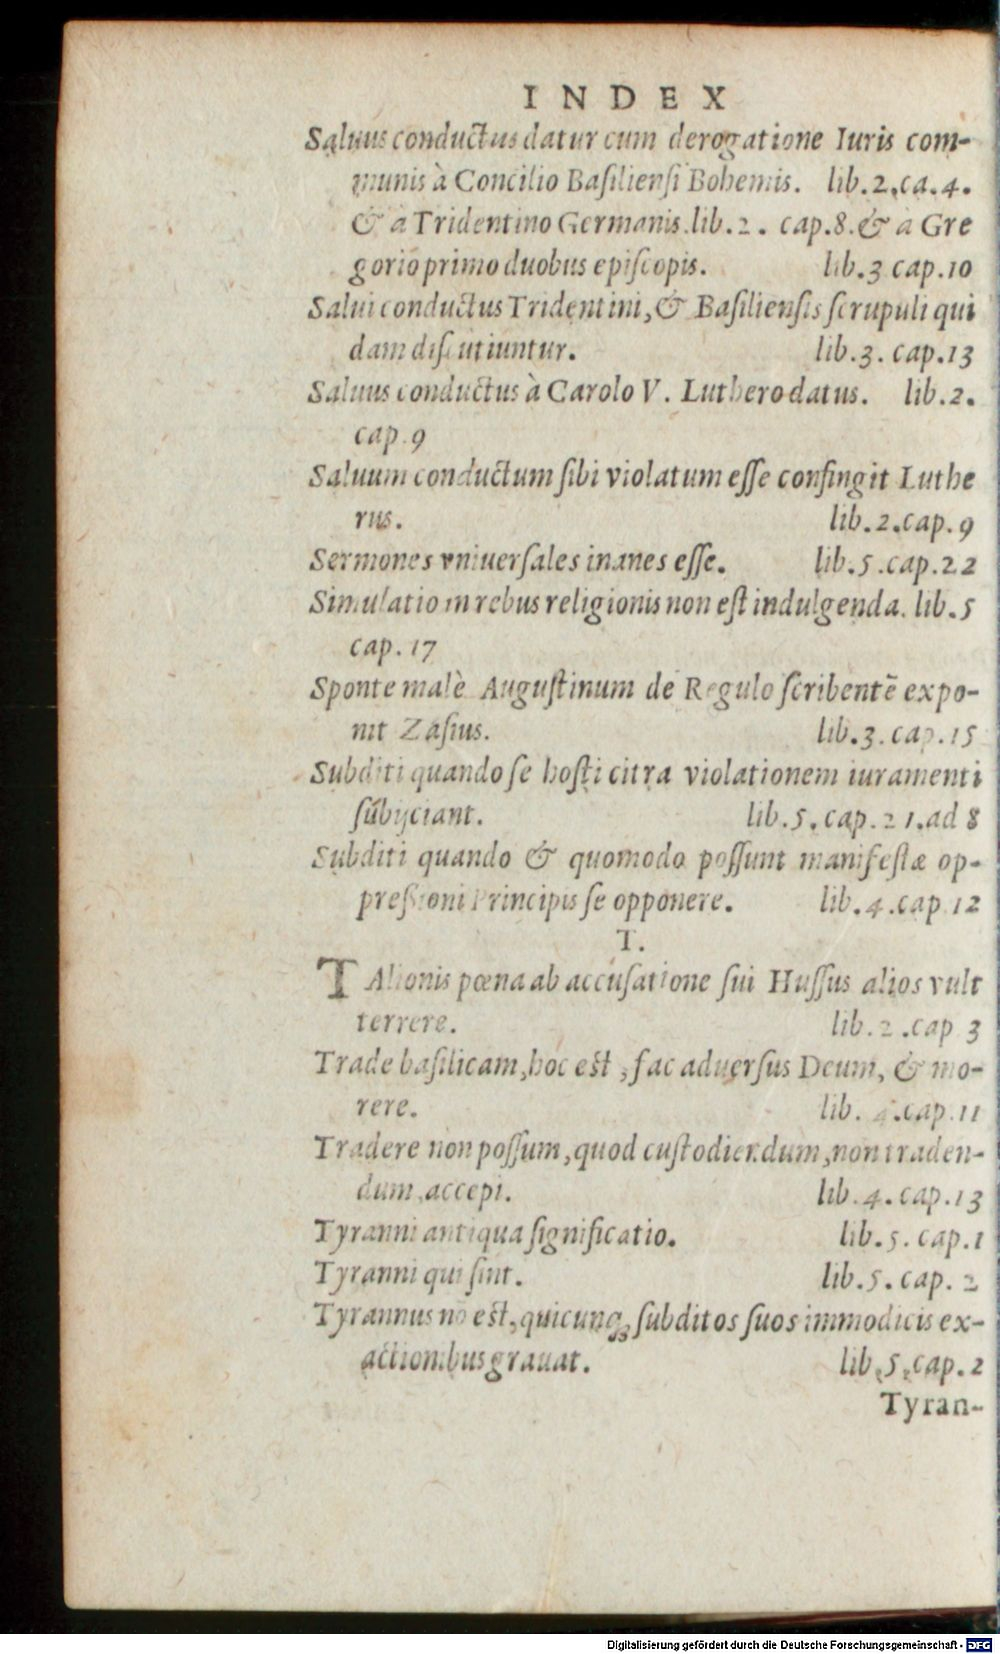 INDEX
Saluus conductus datur cum derogatione Iuris com-
munis à Concilio Basiliensi Bohemis. lib.2.ca.4.
& à Tridentino Germanis.lib.2. cap.8.& a Gre
gorio primo duobus episcopis. lib.3 cap.10
Salui conductus Tridentini,& Basiliensis scrupuli qui
dam discutiuntur. lib.3. cap.13
Saluus conductus à Carolo V. Luthero datus. lib.2.
cap.9
Saluum conductum sibi violatum esse confingit Luthe
rus. lib.2.cap.9
Sermones vniuersales inanes esse. lib.5.cap.22
Simulatio in rebus religionis non est indulgenda. lib.5
cap.17
Sponte malè Augustinum de Regulo scribentē expo-
nit Zasius. lib.3.cap.15
Subditi quando se hosti citra violationem iuramenti
subijciant. lib.5.cap.21.ad 8
Subditi quando & quomodo possunt manifestæ op-
pressioni Principis se opponere. lib.4.cap 12
T.
TAlionis pœna ab accusatione sui Hussus alios vult
terrere. lib.2.cap 3
Trade basilicam,hoc est,fac aduersus Deum, & mo-
rere. lib. 4.cap.11
Tradere non possum,quod custodiendum,non traden-
dum accepi. lib.4.cap.13
Tyranni antiqua significatio. lib.5.cap.1
Tyranni qui sint. lib.5.cap. 2
Tyrannus nō est,quicunq; subditos suos immodicis ex-
actionibus grauat. lib.5.cap.2
Tyran-
Digitalisierung gefördert durch die Deutsche Forschungsgemeinschaft - DFG